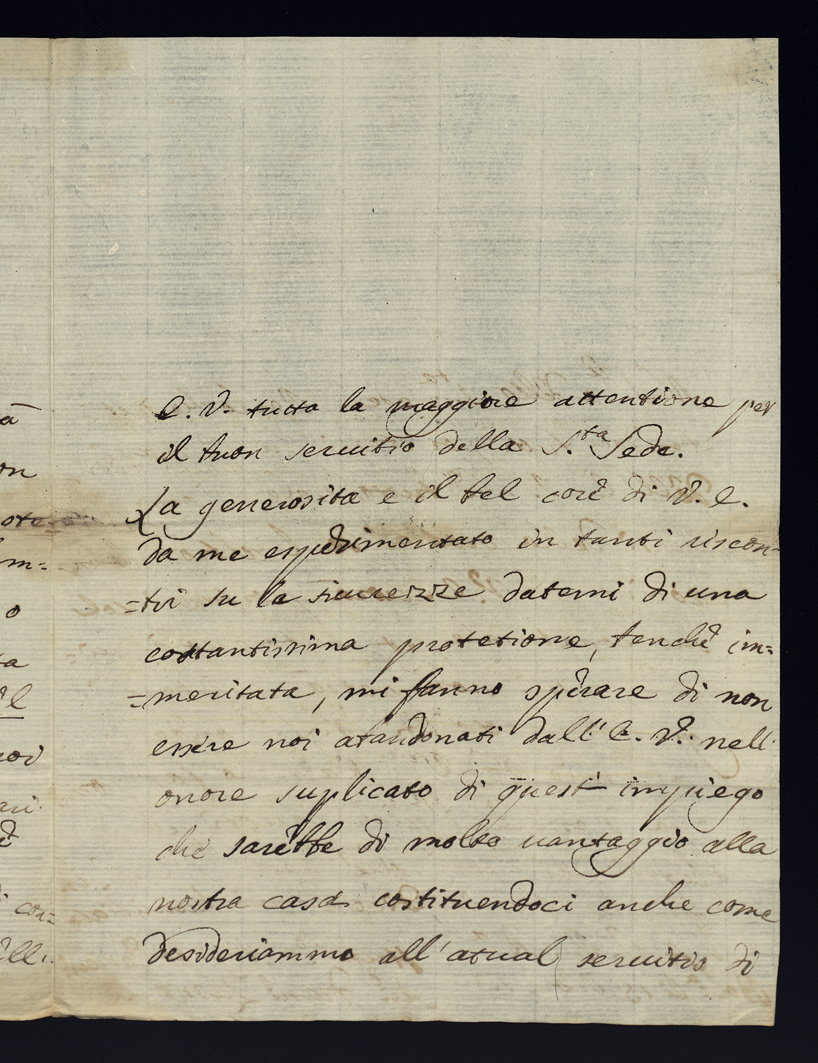 E. V. tutta la maggiore attentione per
il buon servitio della S.ta Sede.
La generosità e il bel core di V. E.
da me esperimentato in tanti riscon-
=tri su la sicurezze datemi di una
costantissima protetione, benche im=
=meritata, mi fanno sperare di non
essere noi abandonati dall' E. V. nell'
onore suplicato di quest' impiego
che sarebbe di molto vantaggio alla
nostra casa costituendoci anche come
desideriammo all' atual servitio di